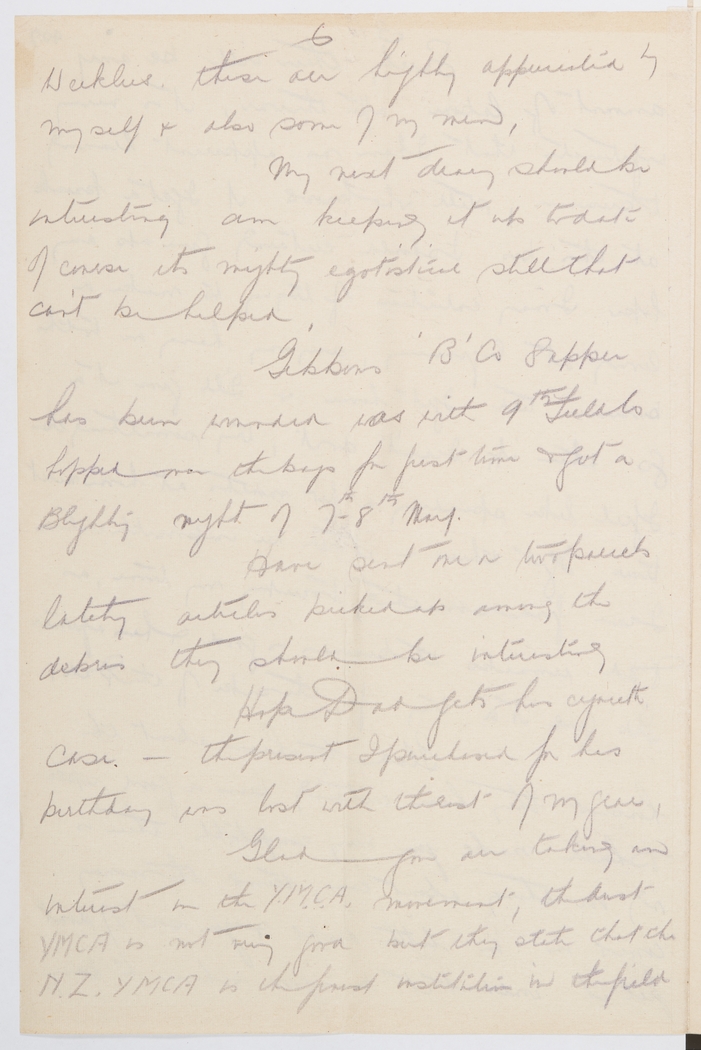 6
Weeklies. These are highly appreciated by
myself & also some of my men,
My next diary should be
interesting am keeping it up to date
of course its mighty egotistical still that
can't be helped,
Gibbons 'B' Co Sapper
has been wounded was with 9th Field Co
hopped over the bags for first time & got a
Blighty night of 7th-8th May.
Have sent one or two parcels
lately articles picked up among the
debris they should be interesting
Hope Dad gets his cigarette
case. — the present I purchased for his
birthday was lost with the rest of my gear,
Glad you are taking an
interest in the Y.M.C.A. movement, the Aust
YMCA is not very good but they state that the
N.Z. YMCA is the finest institution in the field